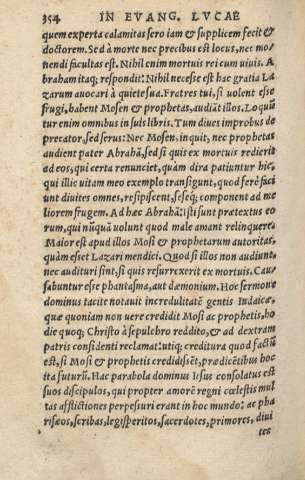 354 IN EVANG. LVCAE
quem experta calamitas sero iam & supplicem fecit &
doctorem. Sed à morte nec precibus est locus, nec mo/
nendi facultas est. Nihil enim mortuis rei cum uiuis. A
braham itaq; respondit: Nihil necesse est hac gratia La
zarum auocari à quiete sua. Fratres tui, si uolent esse
frugi, habent Mosen & prophetas, audiāt illos. Loquū
tur enim omnibus in suis libris. Tum diues improbus de
precator, sed serus: Nec Mosen, inquit, nec prophetas
audient pater Abrahā, sed si quis ex mortuis redierit
ad eos, qui certa renunciet, quàm dira patiuntur hic,
qui illic uitam meo exemplo transigunt, quod ferè faciū
unt diuites omnes, resipiscent, seseq; component ad me
liorem frugem. Ad haec Abrahā: isti sunt praetextus eo
rum, qui nūquā uolunt quod male amant relinquere.
Maior est apud illos Mosi & prophetarum autoritas,
quàm esset Lazari mendici. Quod si illos non audiunt,
nec audituri sint, si quis resurrexerit ex mortuis. Cau/
sabuntur esse phantasma, aut daemonium. Hoc sermone
dominus tacite notauit incredulitatē gentis Iudaicae,
quae quoniam non uere credidit Mosi ac prophetis, ho
die quoq; Christo à sepulcro reddito, & ad dextram
patris considenti reclamat: utiq; creditura quod factū
est, si Mosi & prophetis credidisēt, praedicētibus hoc
ita futurū. Hac parabola dominus Iesus consolatus est
suos discipulos, qui propter amorē regni coelestis mul
tas afflictiones perpessuri erant in hoc mundo: ac pha
risaeos, scribas, legisperitos, sacerdotes, primores, diui
tes